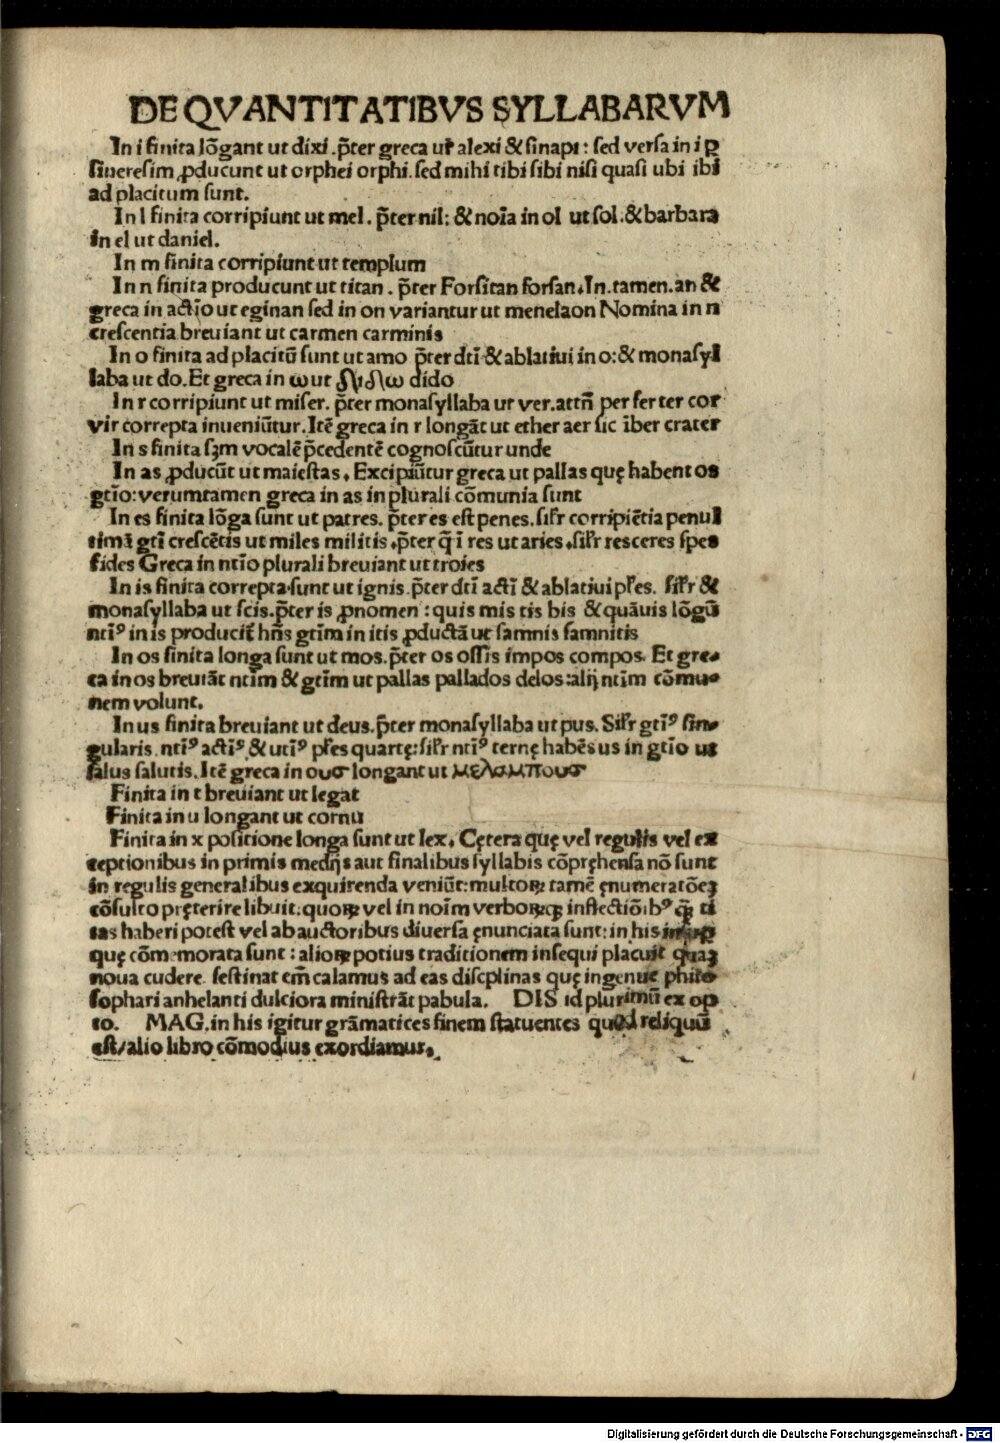 DE QVANTITATIBVS SYLLABARVM
In i finita lōgant ut dixi .p̄ter greca ut alexi & sinapi: sed versa in i ꝑ
sineresim ꝓducunt ut orphei orphi. sed mihi tibi sibi nisi quasi ubi ibi
ad placitum sunt.
In l finita corripiunt ut mel. p̄ter nil: & noīa in ol ut sol: & barbara
in el ut daniel.
In m finita corripiunt ut templum
In n finita producunt ut titan . p̄ter Forsitan forsan. In. tamen. an &
greca in actīo ut eginan sed in on variantur ut menelaon Nomina in n
crescentia breuiant ut carmen carminis
In o finita ad placitū sunt ut amo p̄ter dtī & ablatiui in o: & monasyl
laba ut do. Et greca in ω ut διδω dido
In r corripiunt ut miser. p̄ter monasyllaba ut ver. attn̄ per fer ter cor
vir correpta inueniūtur. Itē greca in r longāt ut ether aer sic iber crater
In s finita scꝫm vocalē p̄cedentē cognoscūtur unde
In as ꝓducūt ut maiestas. Excipiūtur greca ut pallas quę habent os
gtīo: verumtamen greca in as in plurali cōmunia sunt
In es finita lōga sunt ut patres. p̄ter es est penes. silr corripiētia penul
timā gtī crescētis ut miles militis. p̄ter q̄ ī res ut aries. silr res ceres spes
fides Greca in ntīo plurali breuiant ut troies
In is finita correpta sunt ut ignis. p̄ter dtī actī & ablatiui pl̄es. silr &
monasyllaba ut scis. p̄ter is ꝓnomen : quis mis tis bis & quāuis lōgū
ntīꝰ in is producit hn̄s gtīm in itis ꝓductā ut samnis samnitis
In os finita longa sunt ut mos. p̄ter os ossis impos compos. Et gre
ca in os breuiāt ntīm & gtīm ut pallas pallados delos: alij ntīm cōmu
nem volunt.
In us finita breuiant ut deus. p̄ter monasyllaba ut pus. Silr gtīꝰ sin
gularis. ntīꝰ actīꝰ & utīꝰ pl̄es quartę: silr ntīꝰ ternę habēs us in gtīo ut
salus salutis. Itē greca in ουσ longant ut μελαμπουσ
Finita in t breuiant ut legat
Finita in u longant ut cornu
Finita in x positione longa sunt ut lex. Cętera quę vel regulis vel ex
ceptionibus in primis medijs aut finalibus syllabis cōpręhensa nō sunt
in regulis generalibus exquirenda veniūt: multoꝝ tamē ęnumeratōeꝫ
cōsulto pręterire libuit. quoꝝ vel in noīm verboꝝqꝫ inflectiōibꝰ q̄ꝫ ti
tas haberi potest vel ab auctoribus diuersa ęnunciata sunt: in his
quę cōmemorata sunt : alioꝝ potius traditionem insequi placuit quaꝫ
noua cudere. festinat em̄ calamus ad eas discplinas quę ingenue philo
sophari anhelanti dulciora ministrāt pabula. DIS id plurimū ex op
to. MAG. in his igitur grāmatices finem statuentes quod reliquū
est/ alio libro cōmodius exordiamur.
Digitalisierung gefördert durch die Deutsche Forschungsgemeinschaft - DFG